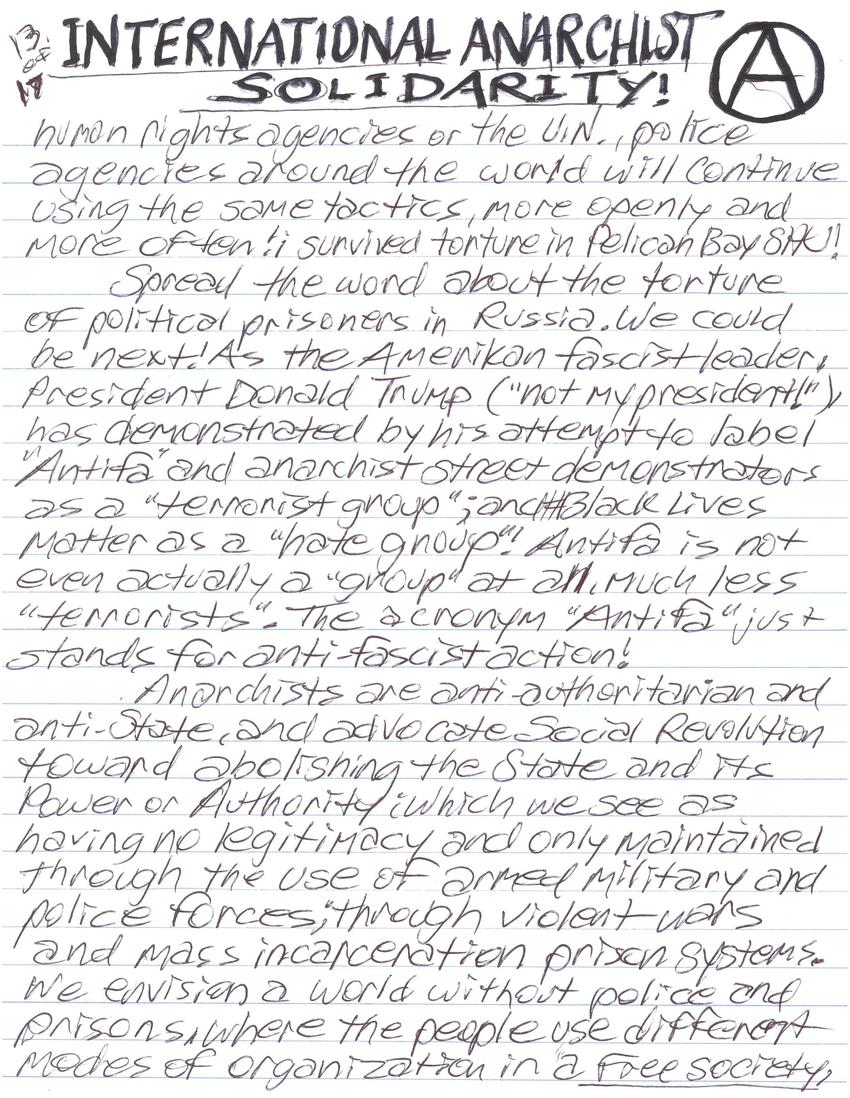 13 of 17
INTERNATIONAL ANARCHIST
SOLIDARITY! A
human rights agencies or the U.N., police
agencies around the world will continue
using the same tactics, more openly and
more often! i survived torture in Pelican Bay SHU!
Spread the word about the torture
of political prisoners in Russia. We could
be next! As the Amerikan fascist leader,
President Donald Trump ("not my president!"),
has demonstrated by his attempt to label
"Antifa" and anarchist street demonstrators
as a "terrorist group"; and #Black Lives
Matter as a "hate group"! Antifa is not
even actually a "group" at all, much less
"terrorists". The acronym "Antifa" just
stands for anti-fascist action!
Anarchists are anti-authoritarian and
anti-State, and advocate Social Revolution
toward abolishing the State and its
Power or Authority; which we see as
having no legitimacy and only maintained
through the use of armed military and
police forces; through violent wars
and mass incarceration prison systems.
We envision a world without police and
prisons, where the people use different
modes of organization in a free society,